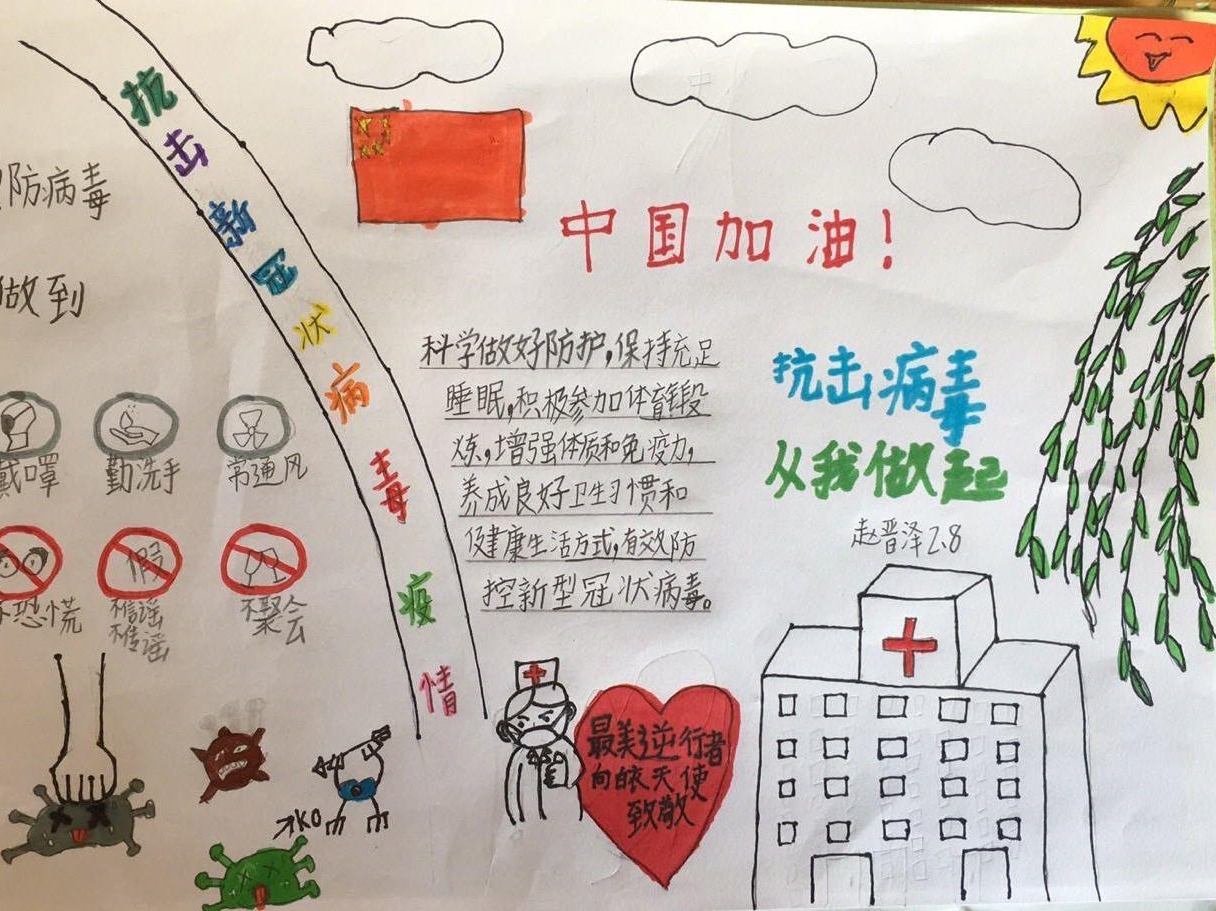 抗击新冠状病毒疫情
防病毒
做到
戴口罩
勤洗手
常通风
不恐慌
假
不信谣
不传谣
不聚会
KO
中国加油!
科学做好防护,保持充足
睡眠,积极参加体育锻
炼,增强体质和免疫力,
养成良好卫生习惯和
健康生活方式,有效防
控新型冠状病毒。
抗击病毒
从我做起
赵晋泽2.8
最美逆行者
向白衣天使
致敬